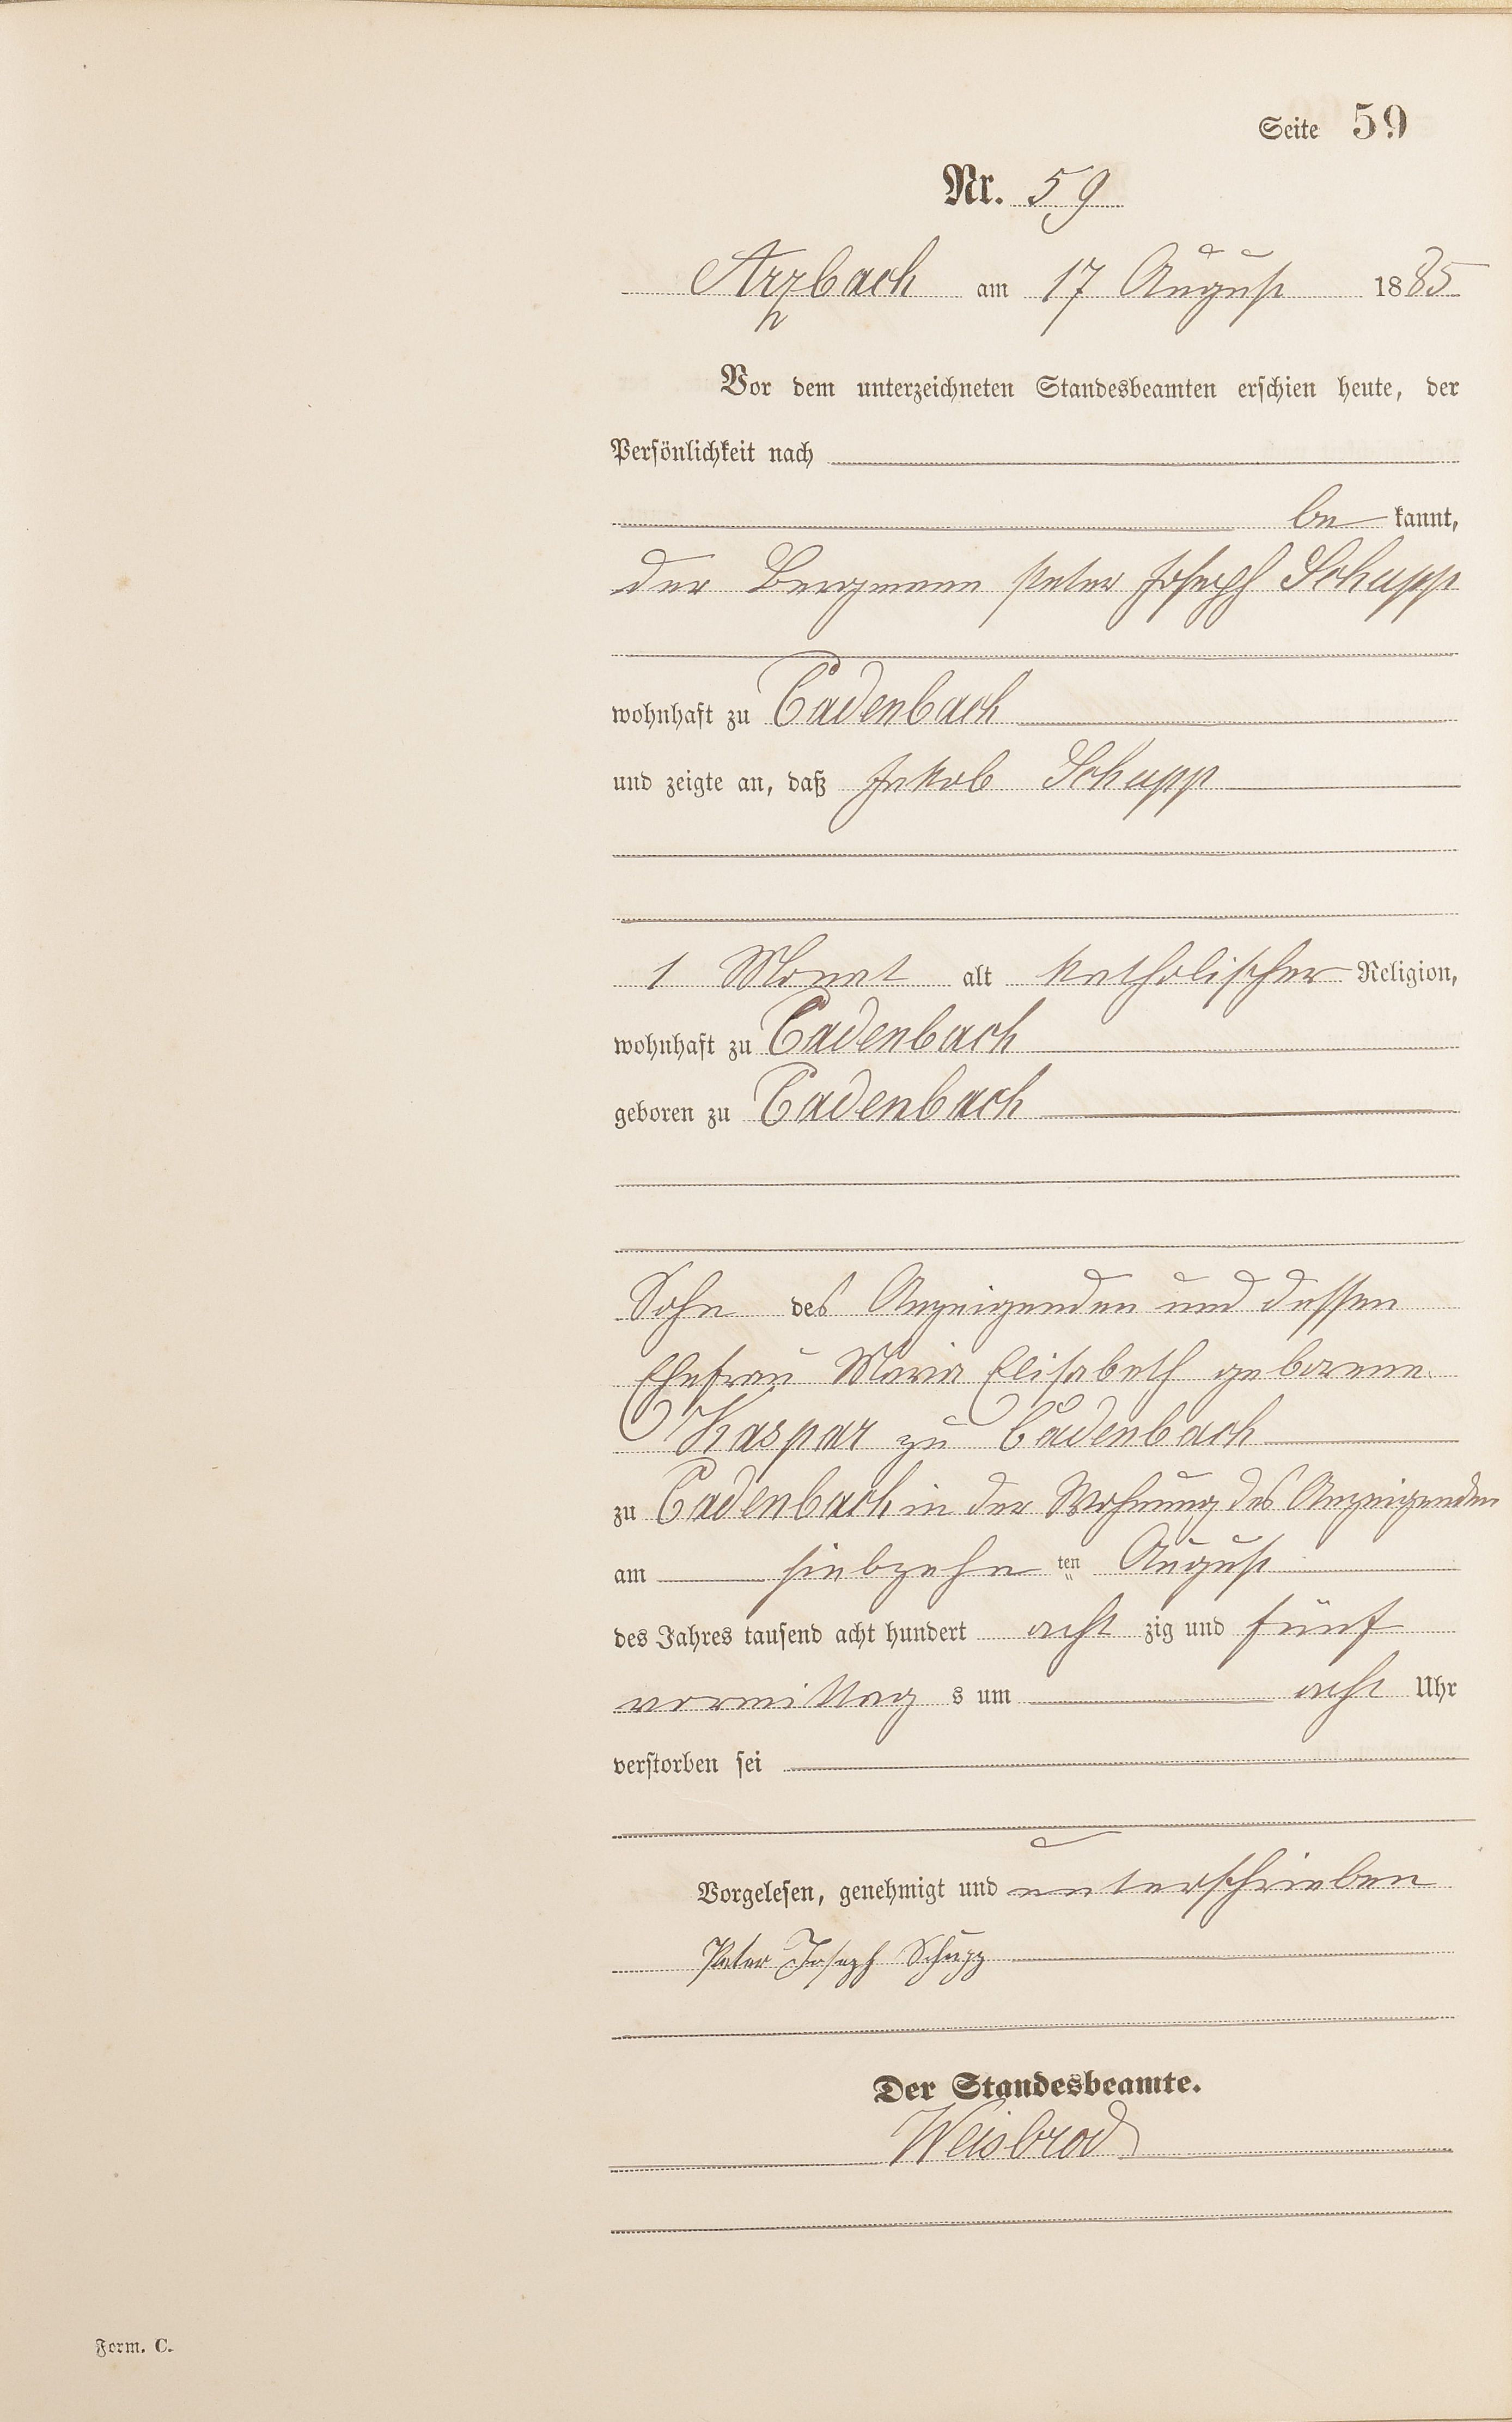 Seite 59
Nr. 59
Arzbach am 17 August 1885
Vor dem unterzeichneten Standesbeamten erschien heute, der
Persönlichkeit nach
be kannt,
der Bergmann Peter Joseph Schupp
wohnhaft zu Cadenbach
und zeigte an, daß Jakob Schupp
1 Monat alt katholischer Religion,
wohnhaft zu Cadenbach
geboren zu Cadenbach
Sohn des Anzeigenden und dessen
Ehefrau Maria Elisabeth geborene
Kaspar zu Cadenbach
zu Cadenbach in der Wohnung des Anzeigenden
am siebzehn ten August
des Jahres tausend acht hundert acht zig und fünf
vormittag s um acht Uhr
verstorben sei
Vorgelesen, genehmigt und unterschrieben
Peter Joseph Schupp
Der Standesbeamte.
Weisbrod
Form. C.